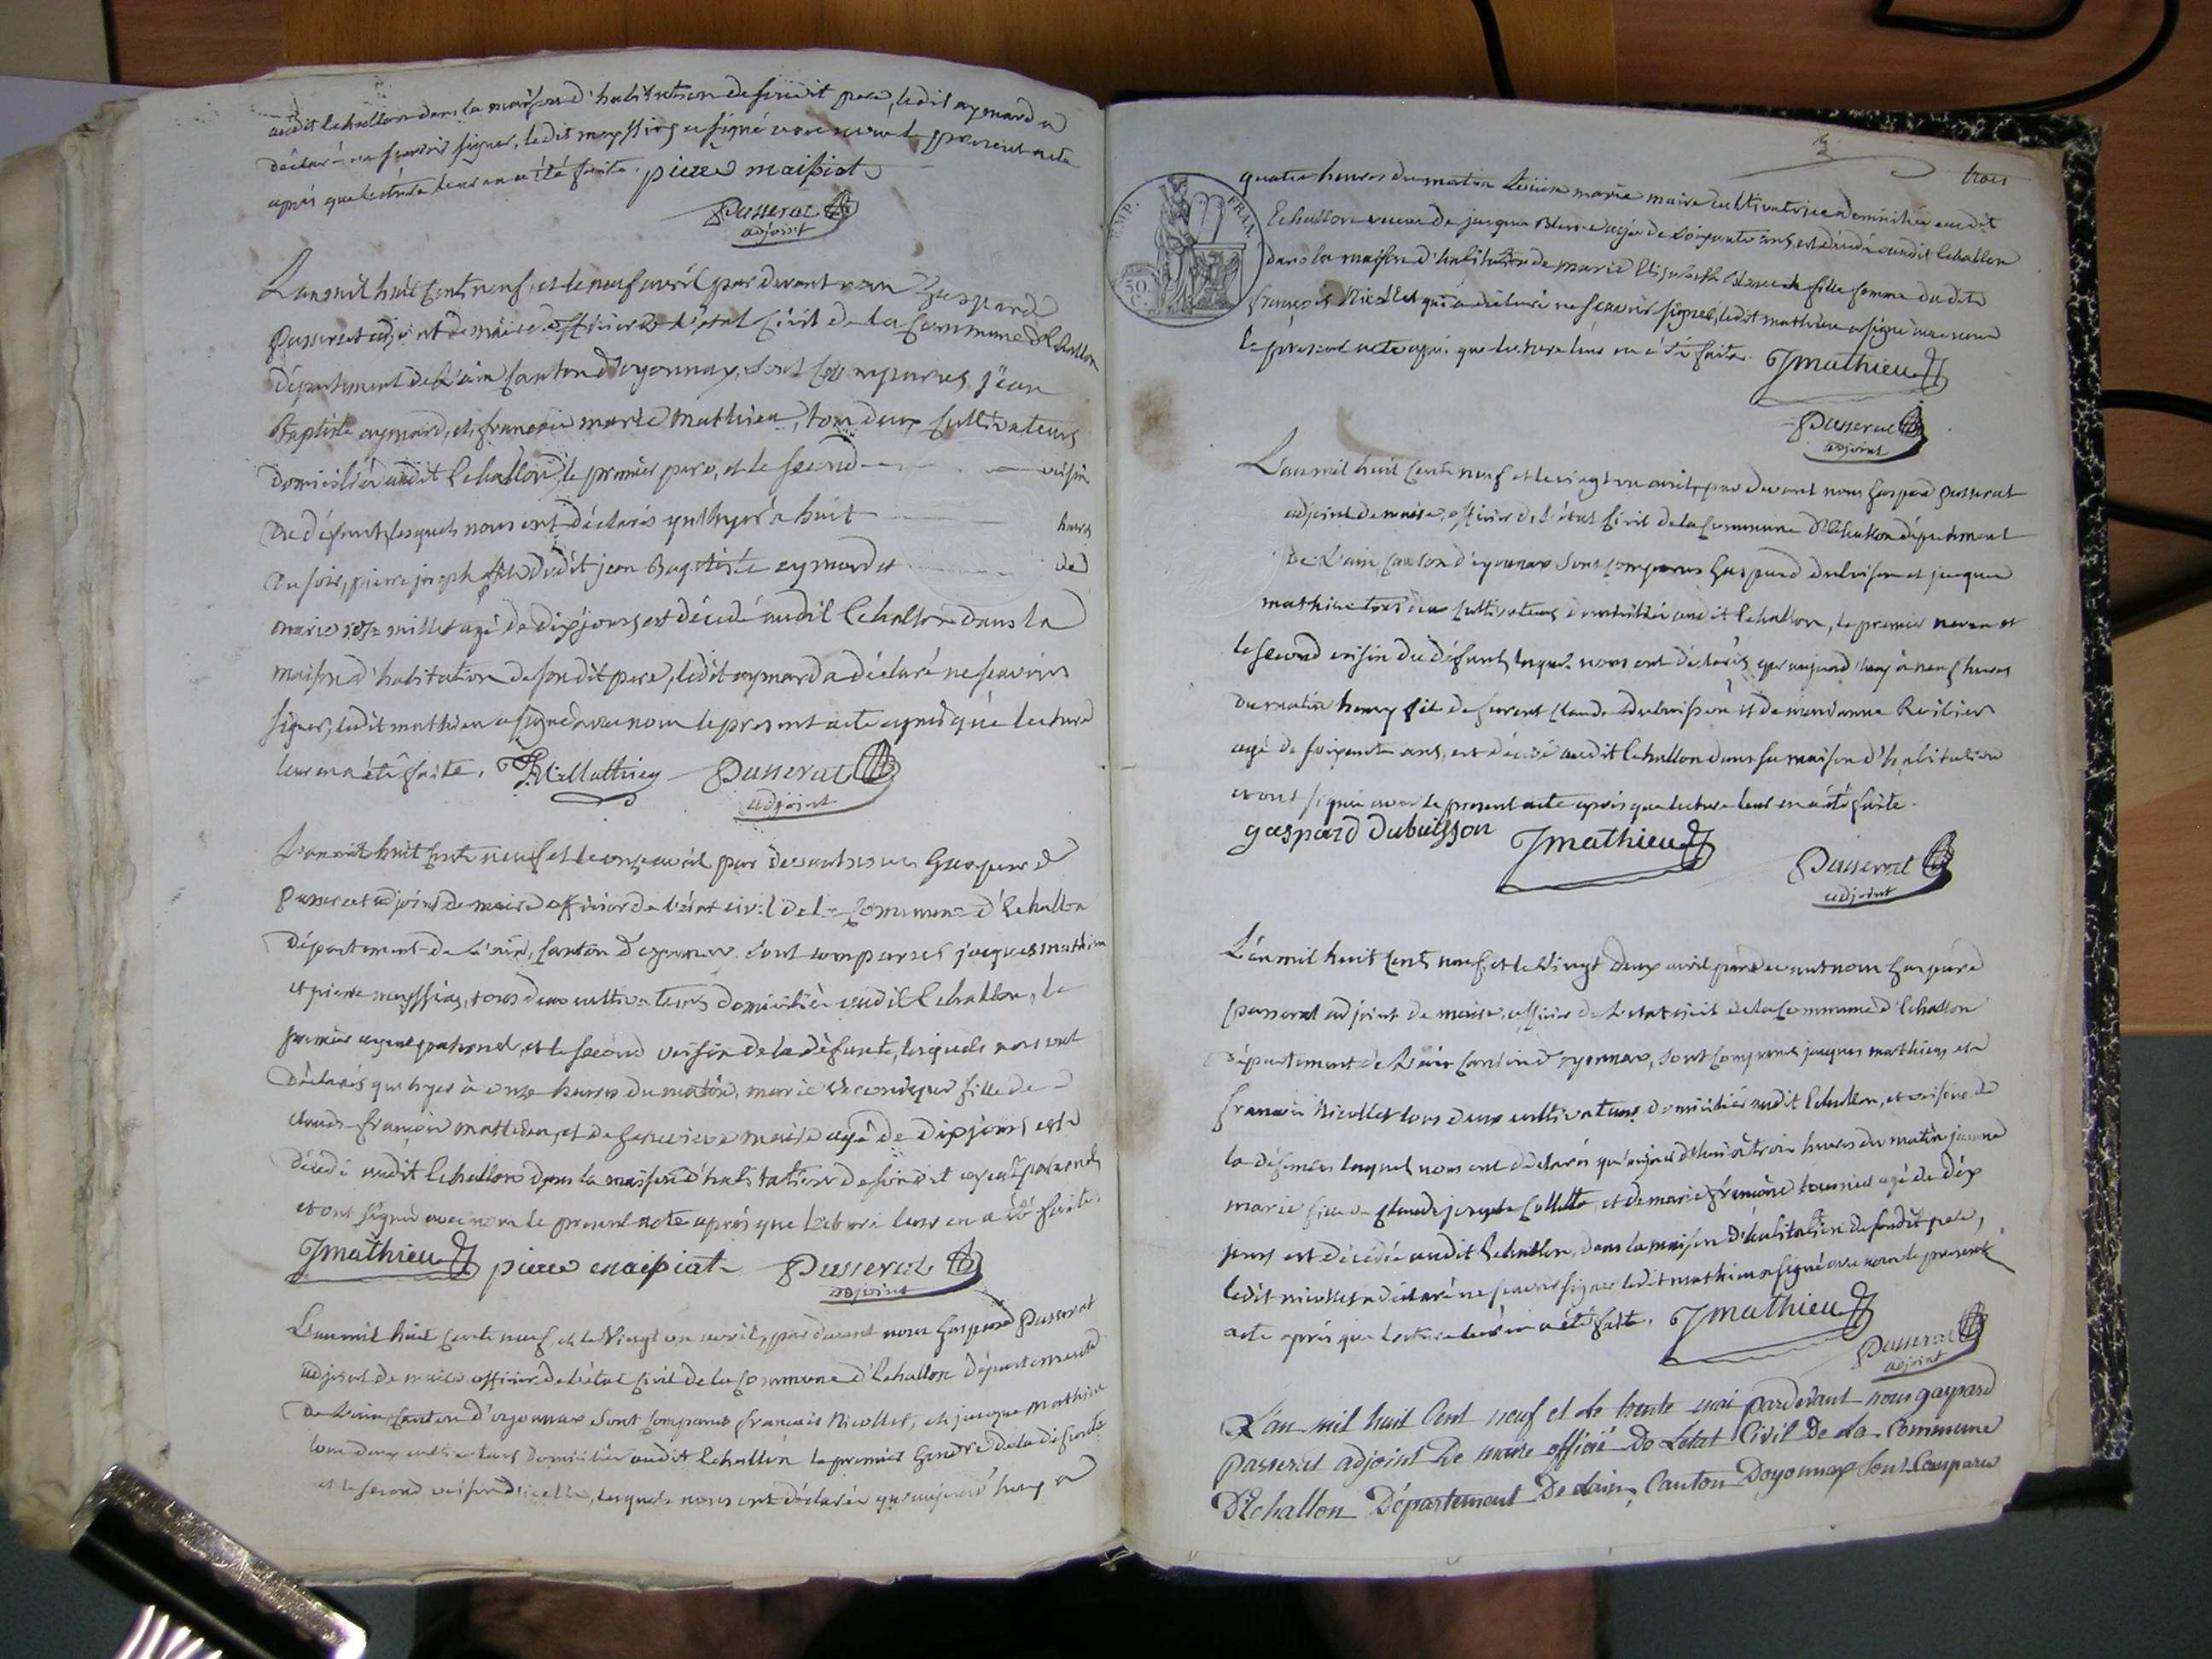 audit Echallon dans la maison d'habitation de sondit pere, ledit aymard a
déclaré ne scavoir signer, ledit mayssiaz a signé avec nous le present acte
après que lecture leur en a été faite. piere maissiat
Passerat
adjoint
L'an mil huit cent neuf, et le neuf avril par devant nous Gaspard
Passerat adjoint de maire officier de l'état civil de la commune d'Echallon
département de l'ain canton d'oyonnax, sont comparus jean
Baptiste aymard, et françois marie Mathieu, tous deux cultivateurs
domiciliés audit Echallon, le premier pere, et le second voisin
du défunt, lesquels nous ont déclarés qu'hyer à huit heures
du soir, pierre joseph fils dudit jean Baptiste aymard et de
marie millet agé de dix jours est décédé audit Echallon dans la
maison d'habitation de sondit pere, ledit aymard a déclaré ne scavoir
signer, ledit mathieu a signé avec nous le present acte après que lecture
leur en a été faite. Mathieu Passerat
adjoint
L'an mil huit cent neuf et le onze avril par devant nous Gaspard
Passerat adjoint de maire officier de l'état civil de la commune d'Echallon
département de l'ain, canton d'oyonnax sont comparus jacques mathieu
et pierre mayssiaz, tous deux cultivateurs domiciliés audit Echallon, le
premier ayeul paternel, et le second voisin de la défunte, lesquels nous ont
déclarés que hyer à onze heures du matin, marie fille de
claude françois mathieu, et de maire agé de dix jours est
décédé audit Echallon dans la maison d'habitation de sondit ayeul paternel
et ont signés avec nous le present acte après que lecture leur en a été faite.
Jmathieu piere maissiat Passerat
adjoint
L'an mil huit cent neuf, et le vingt un avril, par devant nous Gaspard Passerat
adjoint de maire officier de l'état civil de la commune d'Echallon département
de l'ain canton d'oyonnax sont comparus françois Nicollet, et jacque mathieu
tous deux cultivateurs domiciliés audit Echallon le premier gendre de la defunte
et le second voisin d'icelle, lesquels nous ont déclarés qu'aujourd'huy a
3
trois
EMP. FRAN.
50 C.
quatre heures du matin marie maire cultivatrice domiciliée audit
Echallon veuve de jacque agée de soixante ans, est décédé audit Echallon
dans la maison d'habitation de marie fille femme dudit
françois Nicollet qui a déclaré ne scavoir signer, ledit mathieu a signé avec nous
le présent acte après que lecture leur en a été faite. Jmathieu
Passerat
adjoint
L'an mil huit cent neuf et le vingt un avril, par devant nous Gaspard Passerat
adjoint de maire, officier de l'état civil de la commune d'Echallon département
de l'ain canton d'oyonnax sont comparus Gaspard dubuisson et jacque
mathieu tous deux cultivateurs domiciliés audit Echallon, le premier neveu et
le second voisin du défunt, lesquels nous ont déclarés que aujourd'huy à neuf heures
du matin henry fils de claude dubuisson et de
agé de soixante ans, est décédé audit Echallon dans sa maison d'habitation
et ont signés avec le present acte après que lecture leur en a été faite.
gaspard dubuisson Jmathieu Passerat
adjoint
L'an mil huit cent neuf, et le vingt deux avril par devant nous Gaspard
Passerat adjoint de maire officier de l'etat civil de la commune d'Echallon
département de l'ain canton d'oyonnax, sont comparus jacques mathieu et
françois Nicollet tous deux cultivateurs domiciliés audit Echallon, et voisins de
la défunte, lesquels nous ont déclarés qu'aujourd'hui à trois heures du matin jeanne
marie fille de claude joseph Collette et de marie françoise agé de dix
jours est décédée audit Echallon, dans la maison d'habitation de sondit pere,
ledit nicollet a déclaré ne scavoir signer ledit mathieu a signé avec nous le present
acte après que lecture leur en a été faite. Jmathieu
Passerat
adjoint
L'an mil huit Cent neuf et le trente mai pardevant nous gaspard
Passerat adjoint De maire officié De Letat Civil De La Commune
D'Echallon Département De Lain, Canton Doyonnax Sont Comparus